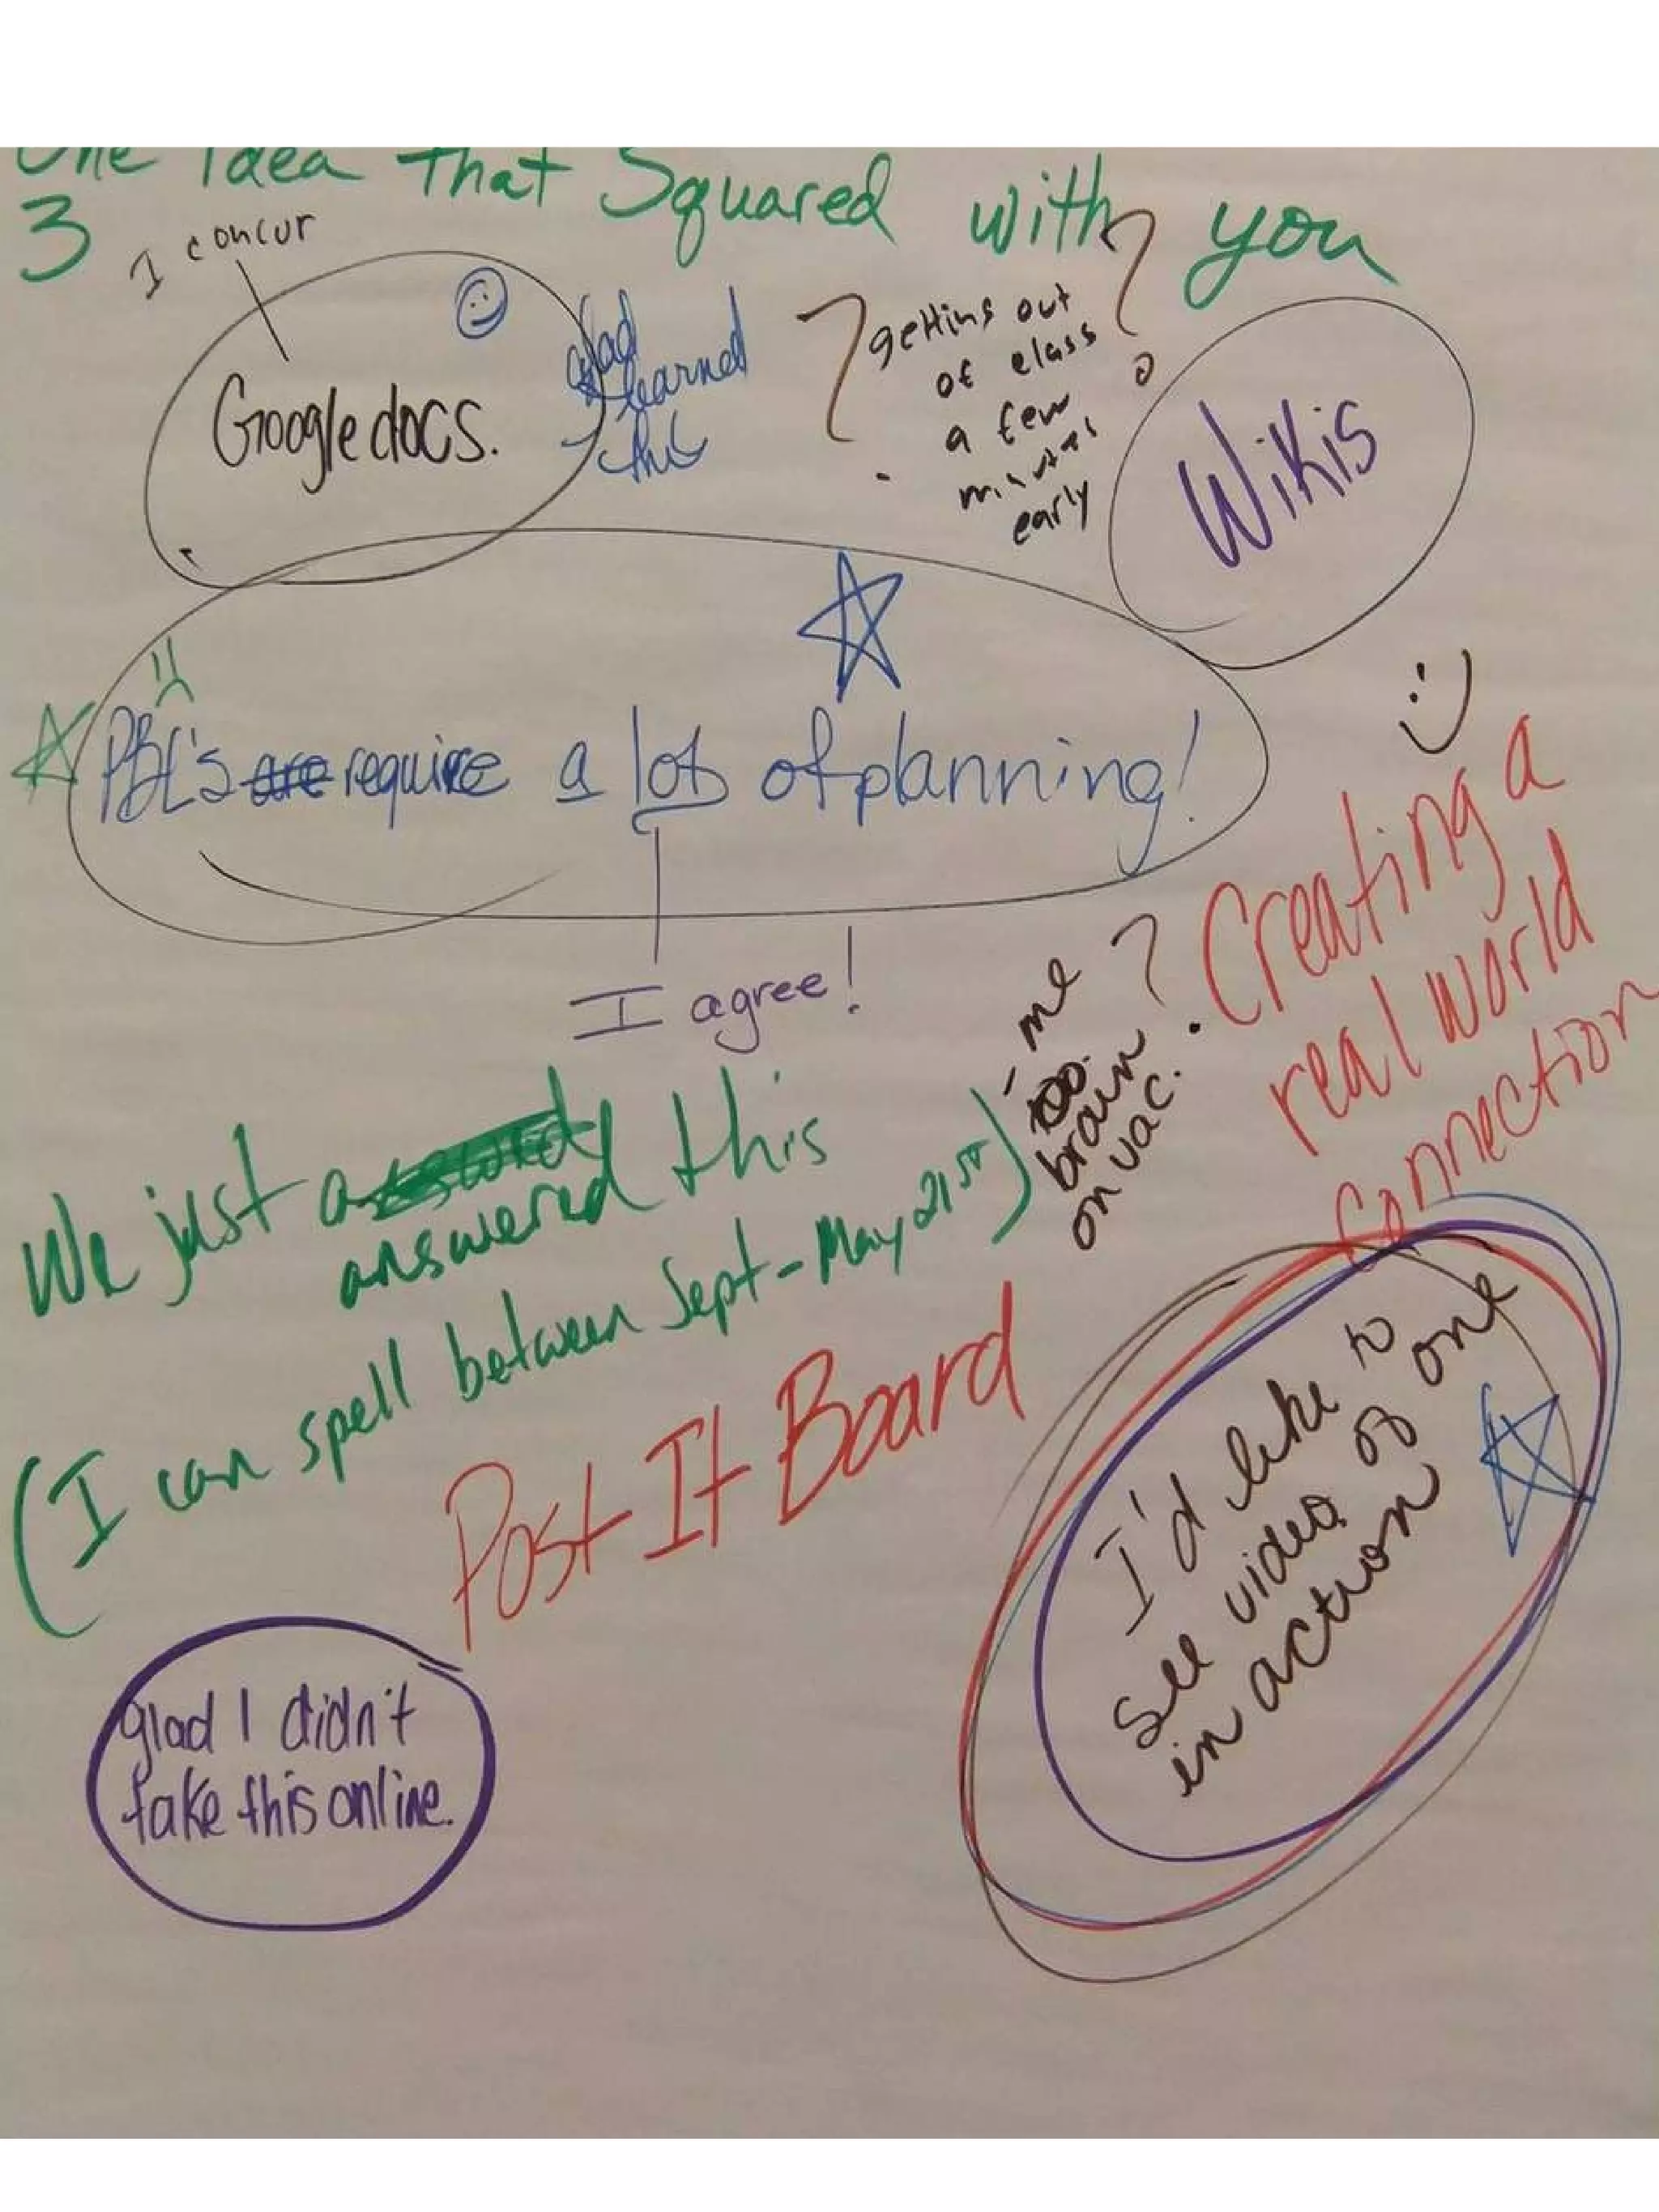 One idea that Squared with you
3
I concur
Google docs.
glad
learned
this
? getting out ?
of class
a few
minutes
early
Wikis
PBL's are require a lot of planning!
I agree!
Creating a
real world
connection
- me ?
too.
brain
on vac.
We just answered this
(I can spell between Sept-May 21st)
Post It Board
I'd like to
see video of one
in action
glad I didn't
take this online.